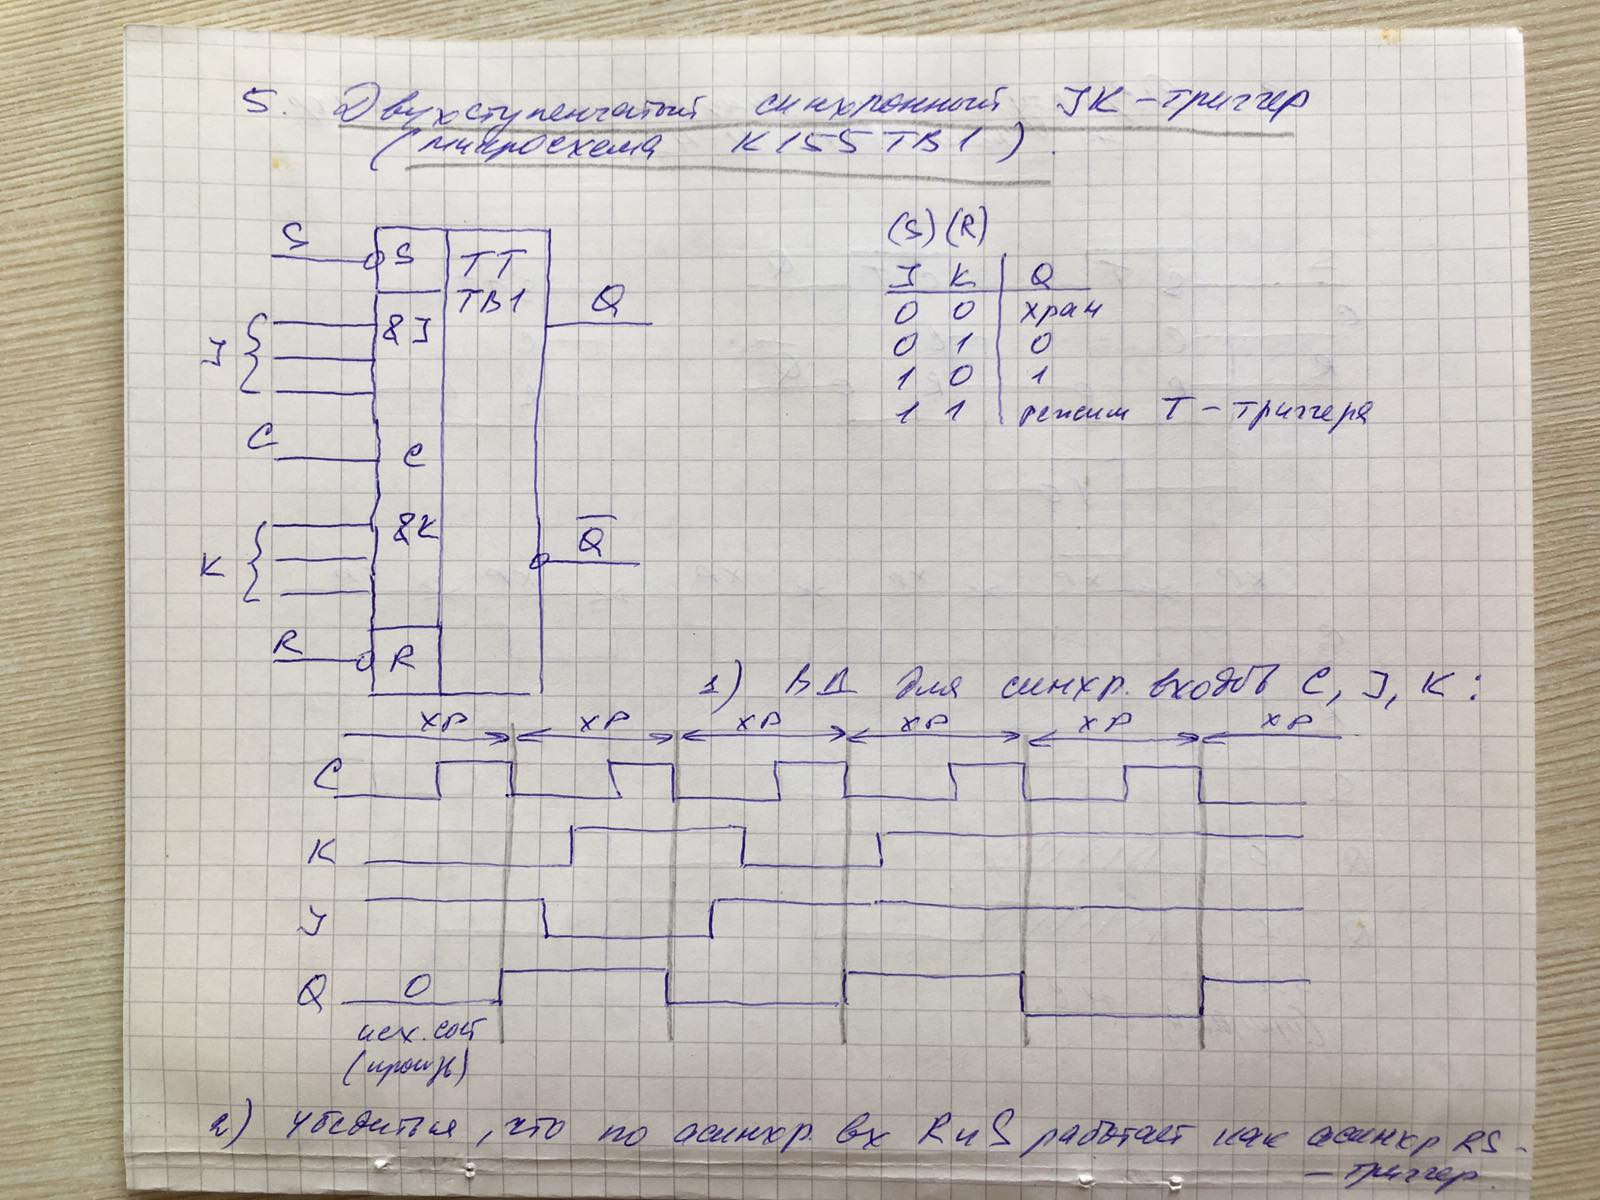 5. Двухступенчатый синхронный JK-триггер
(микросхема К155ТВ1).
S S TT
TB1 Q
J &J
C C
K &K Q̅
R R
(S) (R)
J K Q
0 0 хран
0 1 0
1 0 1
1 1 режим Т-триггера
1) ВД для синхр. входов C, J, K:
хр хр хр хр хр хр
C
K
J
Q 0
исх. сост
(произв)
2) Убедиться, что по асинхр. вх R и S работает как асинхр RS-
-триггер.